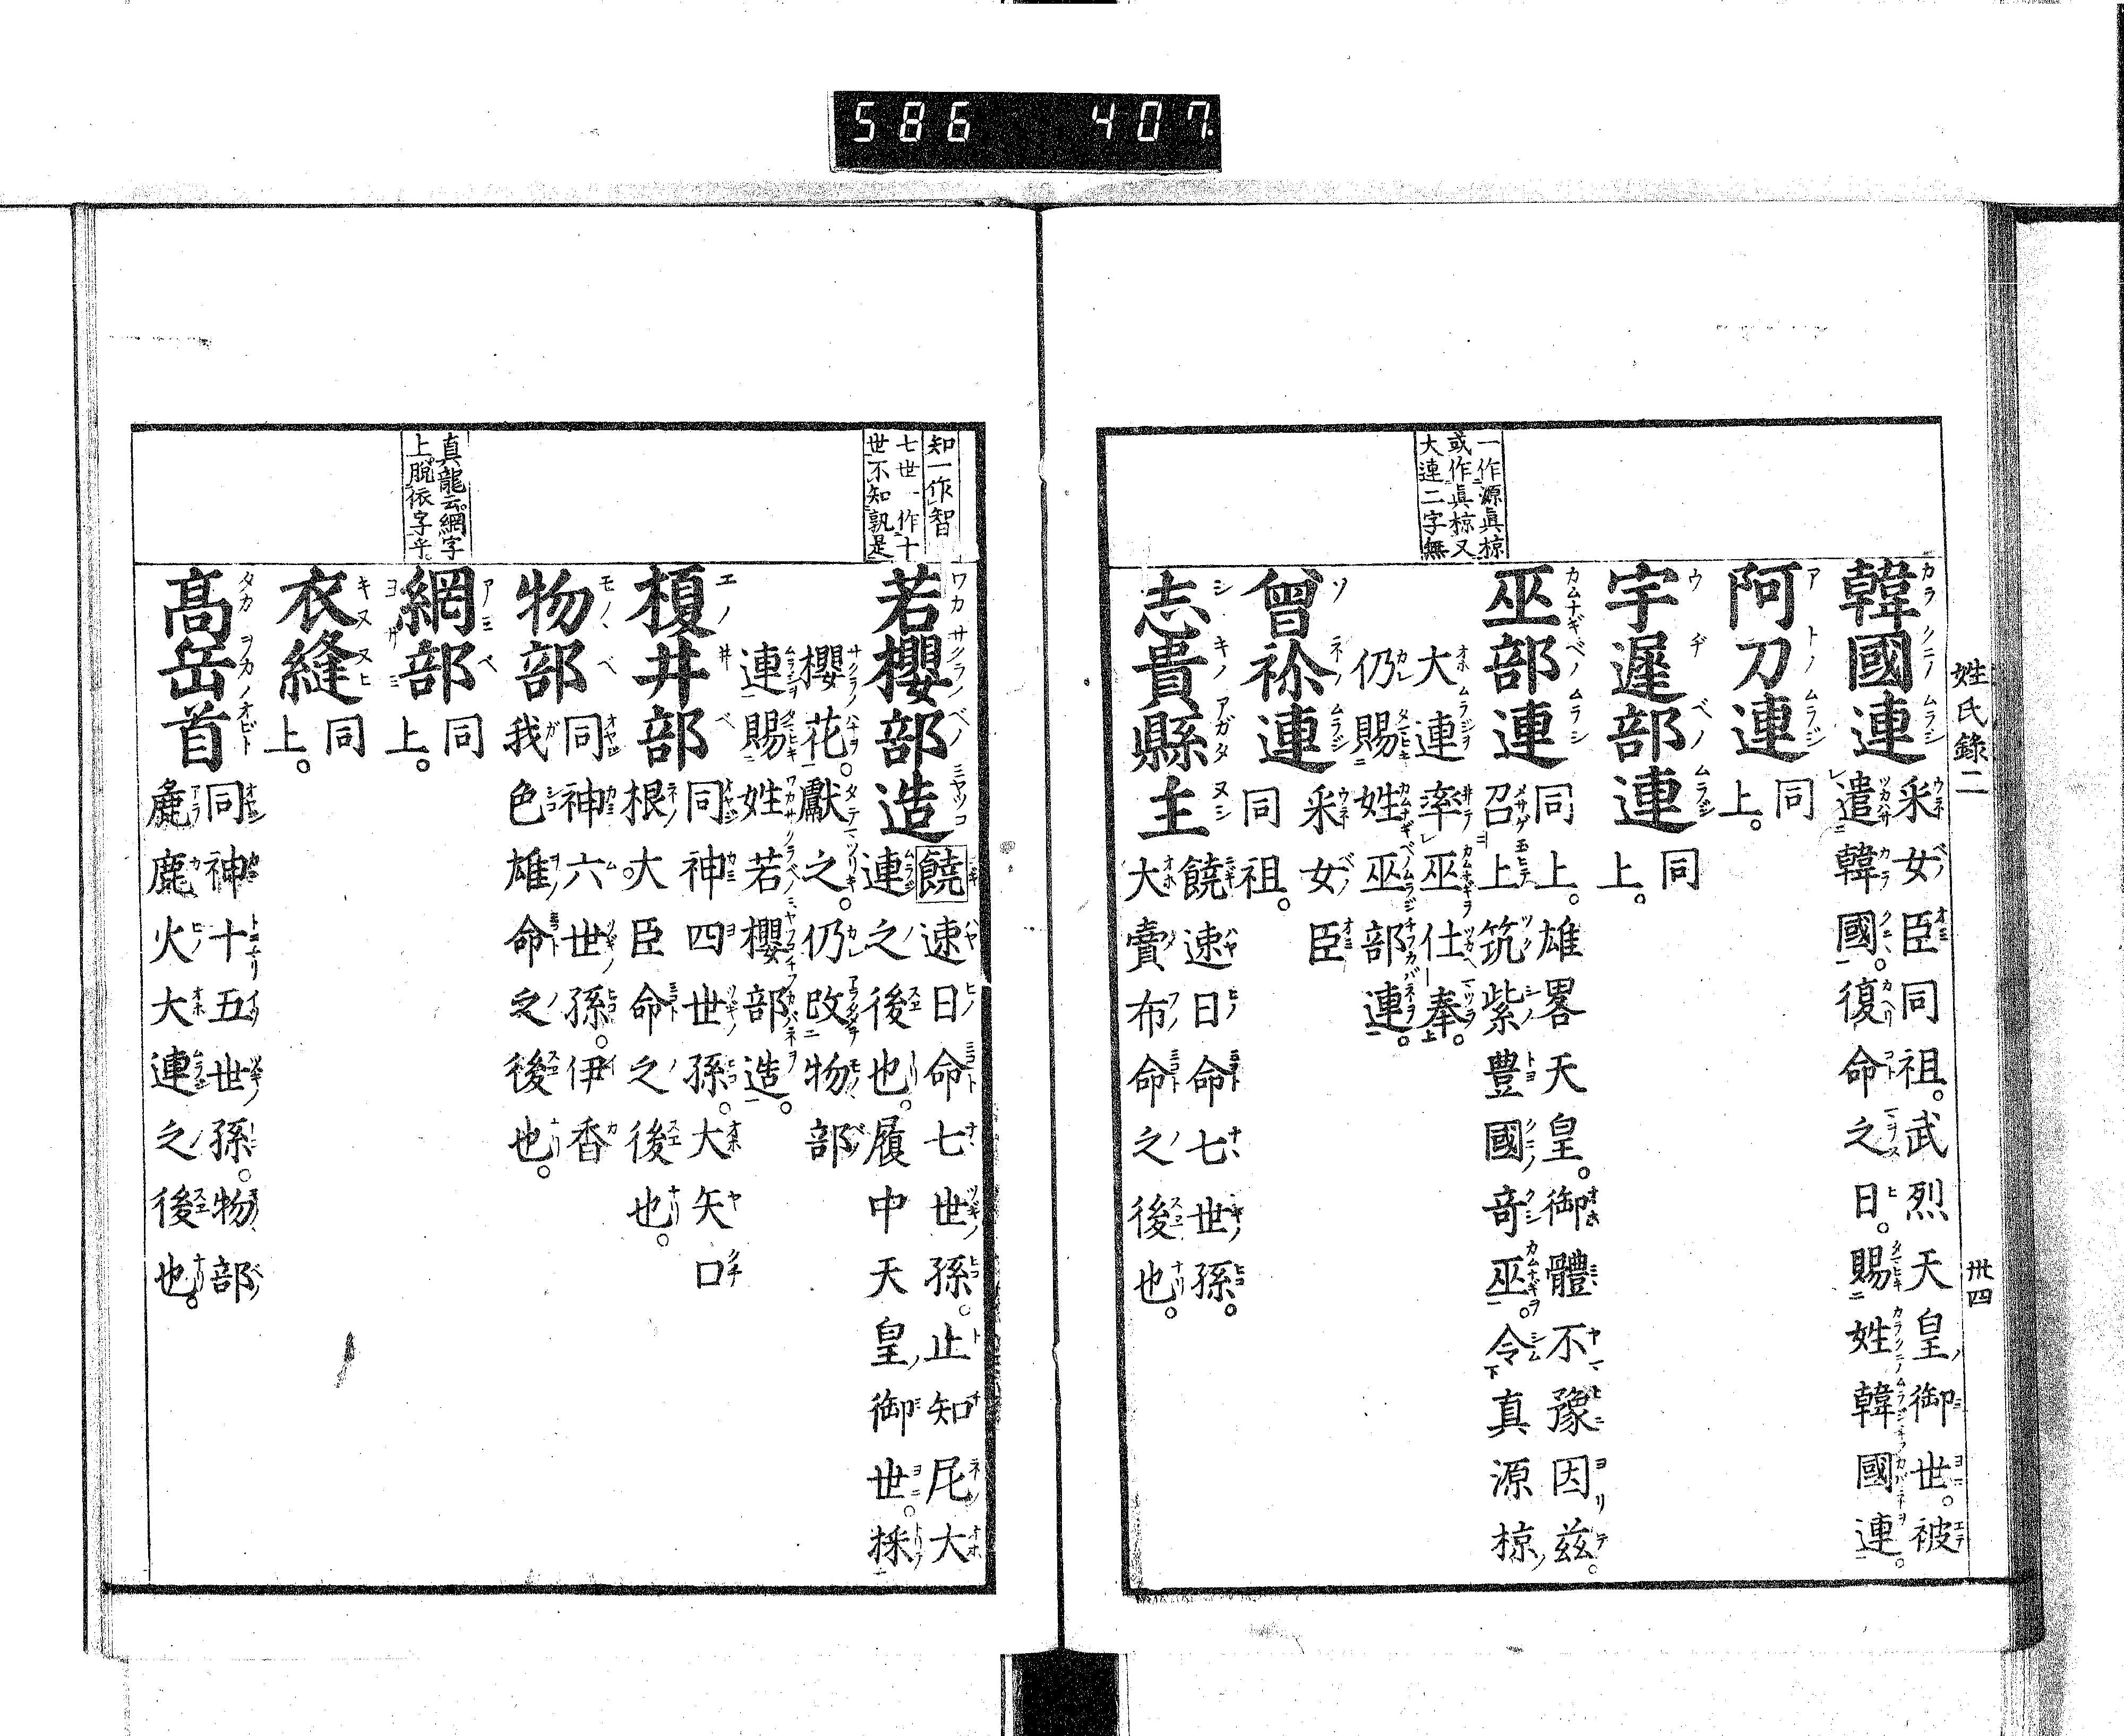 586 407.
姓氏錄二 卅四
一作源眞椋
或作眞椋又
大連二字無
韓國連
采女臣同祖。武烈天皇御世。被
遣韓國。復命之日。賜姓韓國連。
阿刀連
同
上。
宇遲部連
同
上。
巫部連
同上。雄畧天皇。御體不豫因茲。
召上筑紫豊國奇巫。令真源椋
大連率巫仕奉。
仍賜姓巫部連。
曾祢連
采女臣
同祖。
志貴縣主
饒速日命七世孫。
大賣布命之後也。
知一作智
七世一作十
世不知孰是
若櫻部造
饒速日命七世孫。止知尼大
連之後也。履中天皇御世。採
櫻花。獻之。仍改物部
連賜姓若櫻部造。
榎井部
同神四世孫。大矢口
根大臣命之後也。
物部
同神六世孫。伊香
我色雄命之後也。
真龍云。網字
上脫依字乎。
網部
同
上。
衣縫
同
上。
髙岳首
同神十五世孫。物部
麁鹿火大連之後也。